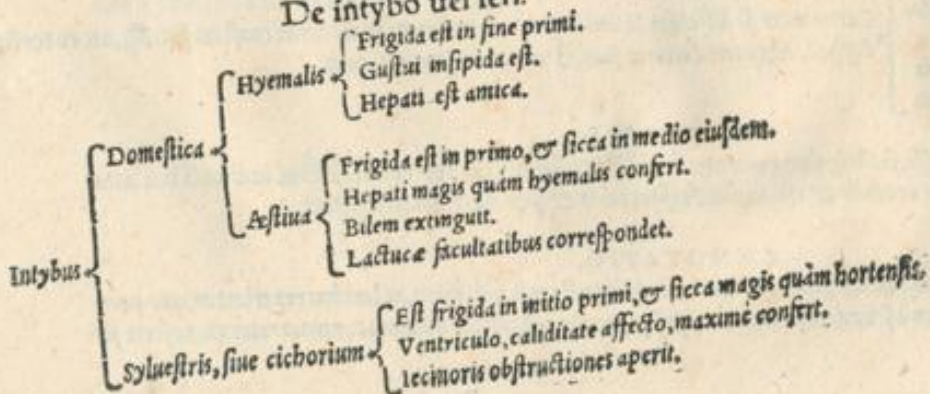 De intybo
Hyemalis
Frigida est in fine primi.
Gustui insipida est.
Hepati est amica.
Domestica
Æstiua
Frigida est in primo, & sicca in medio eiusdem.
Hepati magis quàm hyemalis confert.
Bilem extinguit.
Lactucæ facultatibus correspondet.
Intybus
Syluestris, siue cichorium
Est frigida in initio primi, & sicca magis quàm hortensis.
Ventriculo, caliditate affecto, maximè confert.
Iecinoris obstructiones aperit.